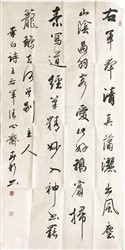 右軍本清真瀟灑出風塵
山陰過羽客愛此好鵝賓掃
素寫道經筆精妙入神書罷
籠鵝去何曾別主人
李白詩王右軍